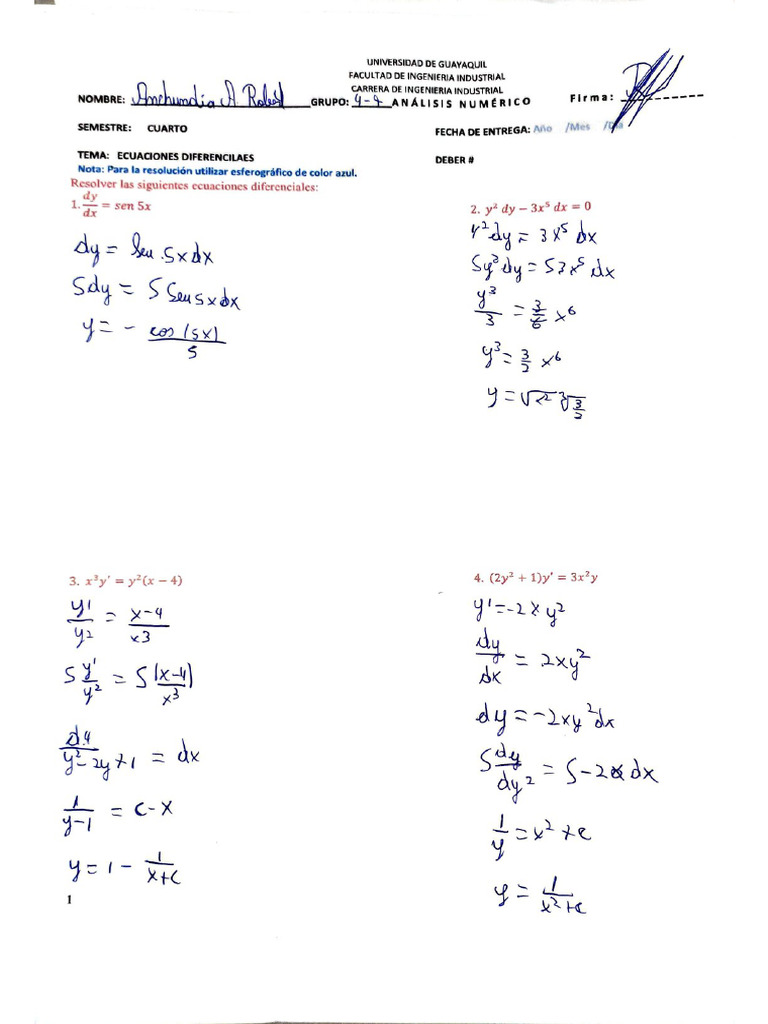 UNIVERSIDAD DE GUAYAQUIL
FACULTAD DE INGENIERIA INDUSTRIAL
CARRERA DE INGENIERIA INDUSTRIAL
NOMBRE: Anchundia A. Robert GRUPO: 4-4 ANÁLISIS NUMÉRICO Firma:
SEMESTRE: CUARTO FECHA DE ENTREGA: Año /Mes /Dia
TEMA: ECUACIONES DIFERENCILAES DEBER #
Nota: Para la resolución utilizar esferográfico de color azul.
Resolver las siguientes ecuaciones diferenciales:
1. dy/dx = sen 5x
dy = Sen. 5x dx
∫dy = ∫ Sen 5x dx
y = - cos (5x)/5
2. y² dy − 3x⁵ dx = 0
y² dy = 3x⁵ dx
∫y² dy = ∫3x⁵ dx
y³/3 = 3/6 x⁶
y³ = 3/2 x⁶
y = √x² ∛3/2
3. x³y′ = y²(x − 4)
y'/y2 = x-4/x3
∫ y'/y² = ∫ (x-4)/x³
dy/y²-2y+1 = dx
1/y-1 = c-x
y = 1 - 1/x+c
4. (2y² + 1)y′ = 3x²y
y' = -2xy²
dy/dx = 2xy²
dy = -2xy² dx
∫ dy/dy² = ∫-2x dx
1/y = x² + c
y = 1/x²+c
1